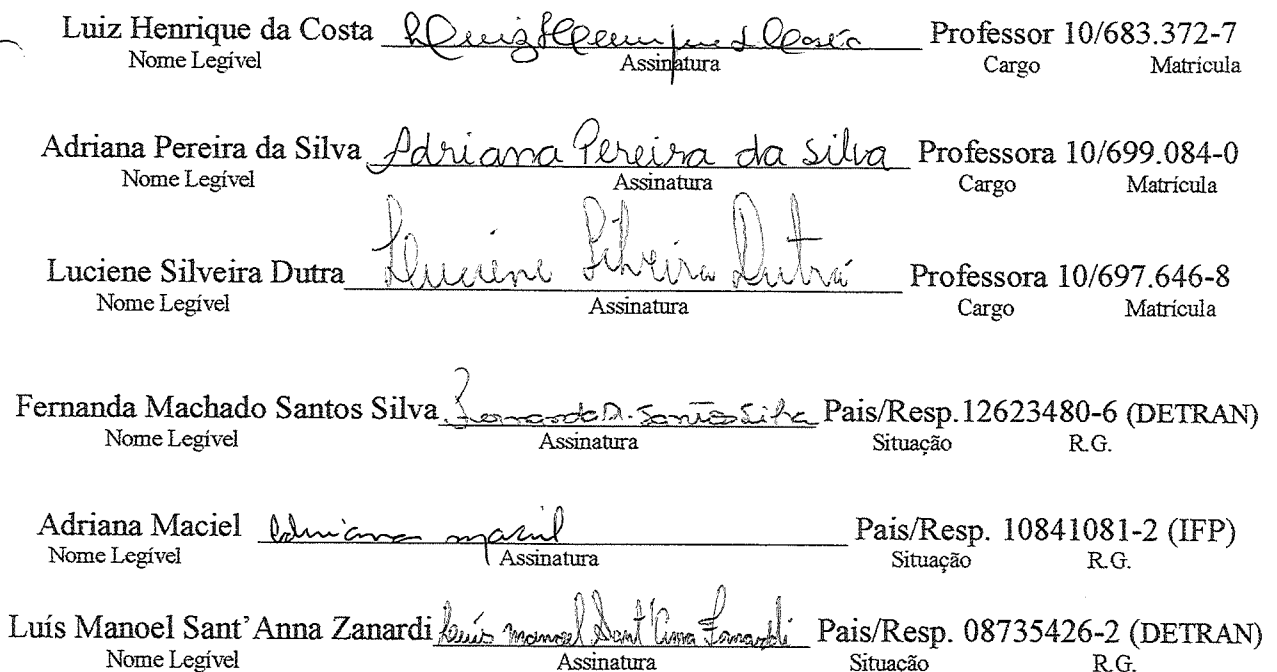 Luiz Henrique da Costa Luiz Henrique da Costa Professor 10/683.372-7
Nome Legível Assinatura Cargo Matrícula
Adriana Pereira da Silva Adriana Pereira da Silva Professora 10/699.084-0
Nome Legível Assinatura Cargo Matrícula
Luciene Silveira Dutra Luciene Silveira Dutra Professora 10/697.646-8
Nome Legível Assinatura Cargo Matrícula
Fernanda Machado Santos Silva Fernanda M. Santos Silva Pais/Resp.12623480-6 (DETRAN)
Nome Legível Assinatura Situação R.G.
Adriana Maciel Adriana Maciel Pais/Resp. 10841081-2 (IFP)
Nome Legível Assinatura Situação R.G.
Luís Manoel Sant'Anna Zanardi Luís Manoel Sant'Anna Zanardi Pais/Resp. 08735426-2 (DETRAN)
Nome Legível Assinatura Situação R.G.